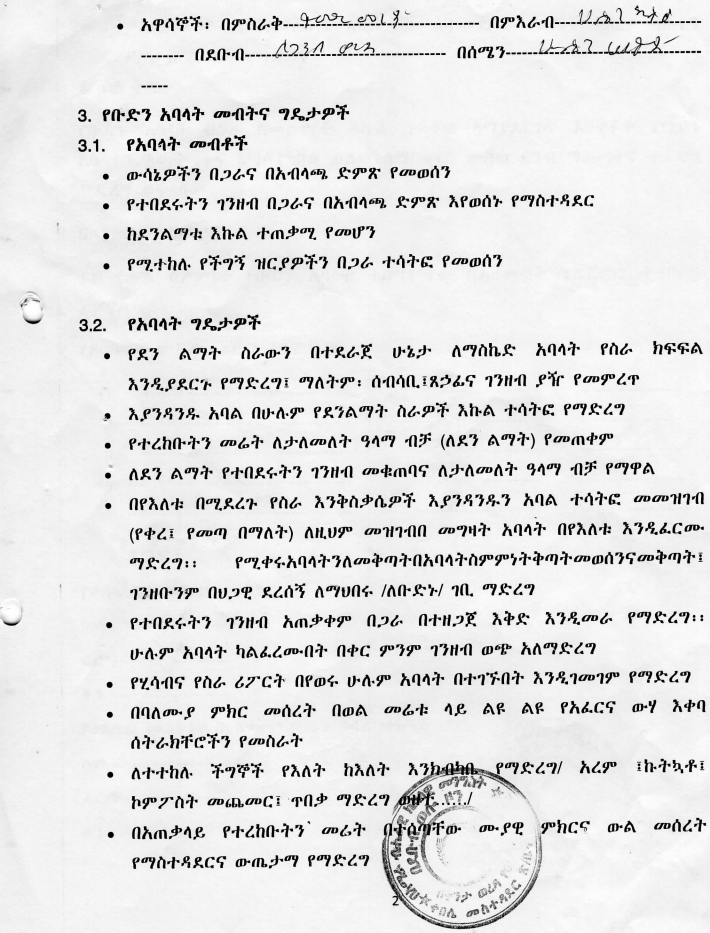 • አዋሳኞች፡ በምስራቅ-------------------------------- በምእራብ------------------------
-------- በደቡብ---------------------------------- በሰሜን--------------------------------
-----
3. የቡድን አባላት መብትና ግዴታዎች
3.1. የአባላት መብቶች
• ውሳኔዎችን በጋራና በአብላጫ ድምጽ የመወሰን
• የተበደሩትን ገንዘብ በጋራና በአብላጫ ድምጽ እየወሰኑ የማስተዳደር
• ከደንልማቱ እኩል ተጠቃሚ የመሆን
• የሚተከሉ የችግኝ ዝርያዎችን በጋራ ተሳትፎ የመወሰን
3.2. የአባላት ግዴታዎች
• የደን ልማት ስራውን በተደራጀ ሁኔታ ለማስኬድ አባላት የስራ ክፍፍል
እንዲያደርጉ የማድረግ፤ ማለትም፡ ሰብሳቢ፤ጸኃፊና ገንዘብ ያዥ የመምረጥ
• እያንዳንዱ አባል በሁሉም የደንልማት ስራዎች እኩል ተሳትፎ የማድረግ
• የተረከቡትን መሬት ለታለመለት ዓላማ ብቻ (ለደን ልማት) የመጠቀም
• ለደን ልማት የተበደሩትን ገንዘብ መቁጠባና ለታለመለት ዓላማ ብቻ የማዋል
• በየእለቱ በሚደረጉ የስራ እንቅስቃሴዎች እያንዳንዱን አባል ተሳትፎ መመዝገብ
(የቀረ፤ የመጣ በማለት) ለዚህም መዝገብበ መግዛት አባላት በየእለቱ እንዲፈርሙ
ማድረግ፡፡ የሚቀሩአባላትንለመቅጣትበአባላትስምምነትቅጣትመወሰንናመቅጣት፤
ገንዘቡንም በህጋዊ ደረሰኝ ለማህበሩ /ለቡድኑ/ ገቢ ማድረግ
• የተበደሩትን ገንዘብ አጠቃቀም በጋራ በተዘጋጀ እቅድ እንዲመራ የማድረግ፡፡
ሁሉም አባላት ካልፈረሙበት በቀር ምንም ገንዘብ ወጭ አለማድረግ
• የሂሳብና የስራ ሪፖርት በየወሩ ሁሉም አባላት በተገኙበት እንዲገመገም የማድረግ
• በባለሙያ ምክር መሰረት በወል መሬቱ ላይ ልዩ ልዩ የአፈርና ውሃ እቀባ
ሰትራክቸሮችን የመስራት
• ለተተከሉ ችግኞች የእለት ከእለት እንክብካቤ የማድረግ/ አረም ፤ኩትኳቶ፤
ኮምፖስት መጨመር፤ ጥበቃ ማድረግ ወዘተ...../
• በአጠቃላይ የተረከቡትን መሬት በተሰጣቸው ሙያዊ ምክርና ውል መሰረት
የማስተዳደርና ውጤታማ የማድረግ
2